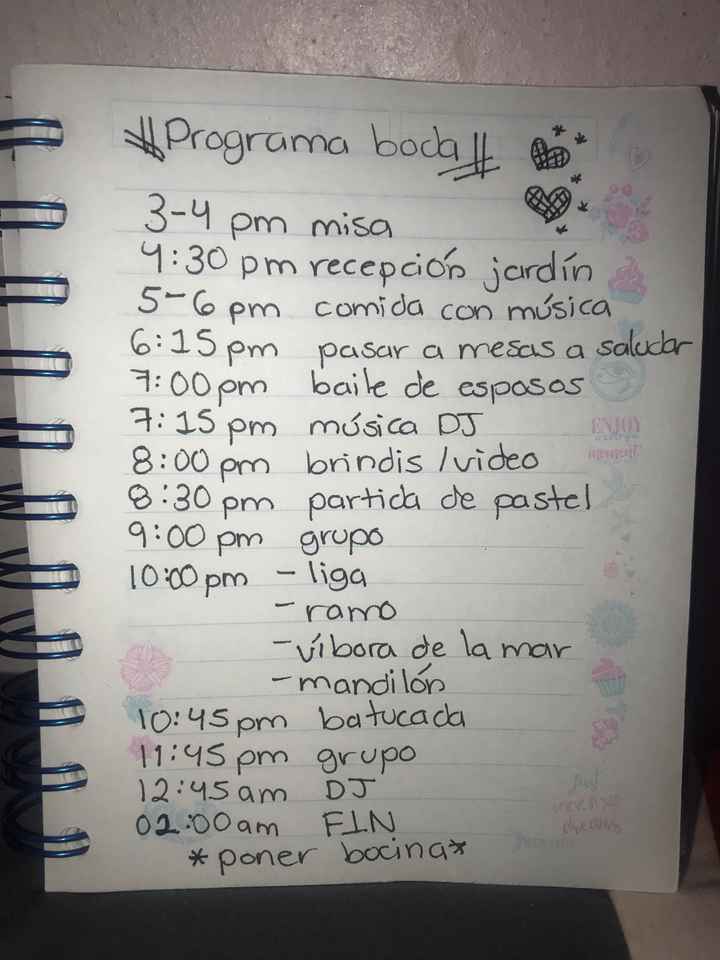 Programa boda
3-4 pm misa
4:30 pm recepción jardín
5-6 pm comida con música
6:15 pm pasar a mesas a saludar
7:00 pm baile de esposos
7:15 pm música DJ
8:00 pm brindis / video
8:30 pm partida de pastel
9:00 pm grupo
10:00 pm - liga
- ramo
- víbora de la mar
- mandilón
10:45 pm batucada
11:45 pm grupo
12:45 am DJ
02:00 am FIN
*poner bocina*
ENJOY
moment